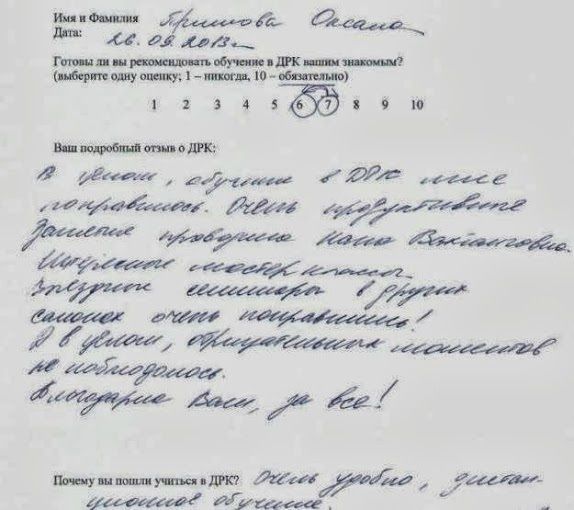 Имя и Фамилия Гришкова Оксана
Дата: 26.09.2013г
Готовы ли вы рекомендовать обучение в ДРК вашим знакомым?
(выберите одну оценку; 1 – никогда, 10 – обязательно)
1 2 3 4 5 6 7 8 9 10
Ваш подробный отзыв о ДРК:
В целом, обучение в ДРК мне
понравилось. Очень продуктивные
Занятия проводила Нана Вахтанговна.
Интересные мастер классы.
Звездные семинары в других
салонах очень понравились!
А в целом, отрицательных моментов
не наблюдалось.
Благодарю Вам, за все!
Почему вы пошли учиться в ДРК? Очень удобно, дистан-
ционное обучение.